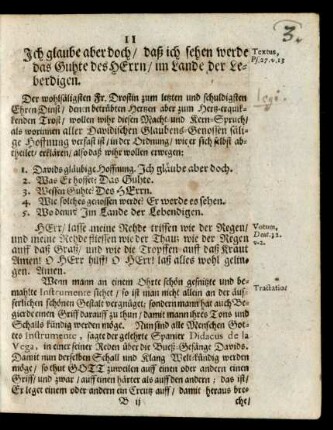 11
3.
Ich glaube aber doch / daß ich sehen werde
das Guhte des HErrn / im Lande der Le-
berdigen.
Textus,
Ps. 27. v. 13
Der wohlsäligsten Fr. Drostin zum letzten und schuldigsten
Ehren Dinst / denen betrübten Hertzen aber zum Hertz-erquik-
kenden Trost / wollen wihr diesen Macht- und Kern-Spruch /
als worinnen aller Davidischen Glaubens-Genossen säli-
ge Hoffnung verfasst ist / in der Ordnung / wie er sich selbst ab-
theilet / erklären / also daß wihr wollen erwegen;
1. Davids gläubige Hoffnung. Ich gläube aber doch.
2. Was Er hoffet: Das Guhte.
3. Wessen Guhte: Des HErrn.
4. Wie solches genossen werde: Er worde es sehen.
5. Wo denn: Im Lande der Lebendigen.
HErr / lasse meine Rehde triffen wie der Regen /
und meine Rehde fliessen wie der Thau; wie der Regen
auff daß Graß / und wie die Tropffen auff daß Kraut
Amen! O HErr hilff / O HErr! laß alles wohl gelin-
gen. Amen.
Votum,
Deut. 32.
v. 2.
Wenn mann an einem Ohrte schön geschnitzte und be-
mahlte Instrumente sehet / so ist man nicht allein an der äus-
serlichen schönen Gestalt vergnüget; sondern mann hat auch Be-
gierde einen Griff darauff zu thun / damit mann ihres Tons und
Schalls kündig werden möge. Nun sind alle Menschen Got-
tes Instrumente, sagte der gelehrte Spanier Didacus de la
Vega, in einer seiner Reden über die Bueß-Gesänge Davids.
Damit nun derselben Schall und Klang Welt-kündig werden
möge / so thut GOTT zuweilen auff einen oder andern einen
Griff / und zwar / auff einen härter als auff den andern; das ist /
Er leget einem oder andern ein Creutz auff / damit heraus bre-
Tractatio
B ij
che /